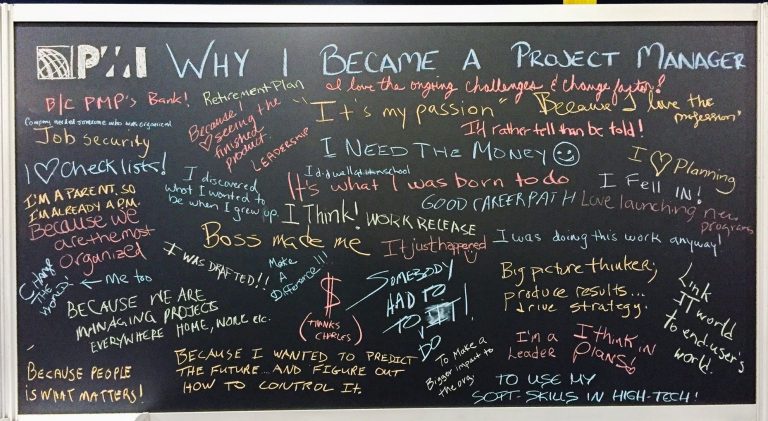 PMI WHY I BECAME A PROJECT MANAGER
B/C PMP's Bank!
Retirement Plan
I love the ongoing challenges & change factor!
Company needed someone who was organized
Job security
Because I
♡ seeing the
finished
product.
LEADERSHIP
"It's my passion"
"Because I love the
profession"
I'd rather tell than be told!
I NEED THE MONEY ☺
I ♡ Checklists!
I discovered
what I wanted to
be when I grew up.
I did well at school
It's what I was born to do
I ♡ Planning
I FELL IN!
I'M A PARENT, SO
I'M ALREADY A P.M.
Because we
are the most
organized
GOOD CAREER PATH
Love launching new
programs
I THINK!
WORK RELEASE
Boss made me
It just happened
I was doing this work anyway!
CHANGE
THE WORLD!
← Me too
I WAS DRAFTED!!
Make
A
Difference!!!
$
(THANKS
CHARLES)
SOMEBODY
HAD TO
TO IT!
DO
Big picture thinker;
produce results...
drive strategy.
Link
IT world
to end user's
world.
BECAUSE WE ARE
MANAGING PROJECTS
EVERYWHERE HOME, WORK etc.
BECAUSE PEOPLE
IS WHAT MATTERS!
BECAUSE I WANTED TO PREDICT
THE FUTURE... AND FIGURE OUT
HOW TO CONTROL IT.
To Make a
Bigger impact to
the org.
I'm a
Leader
I think in
Plans!
TO USE MY
SOFT-SKILLS IN HIGH-TECH!